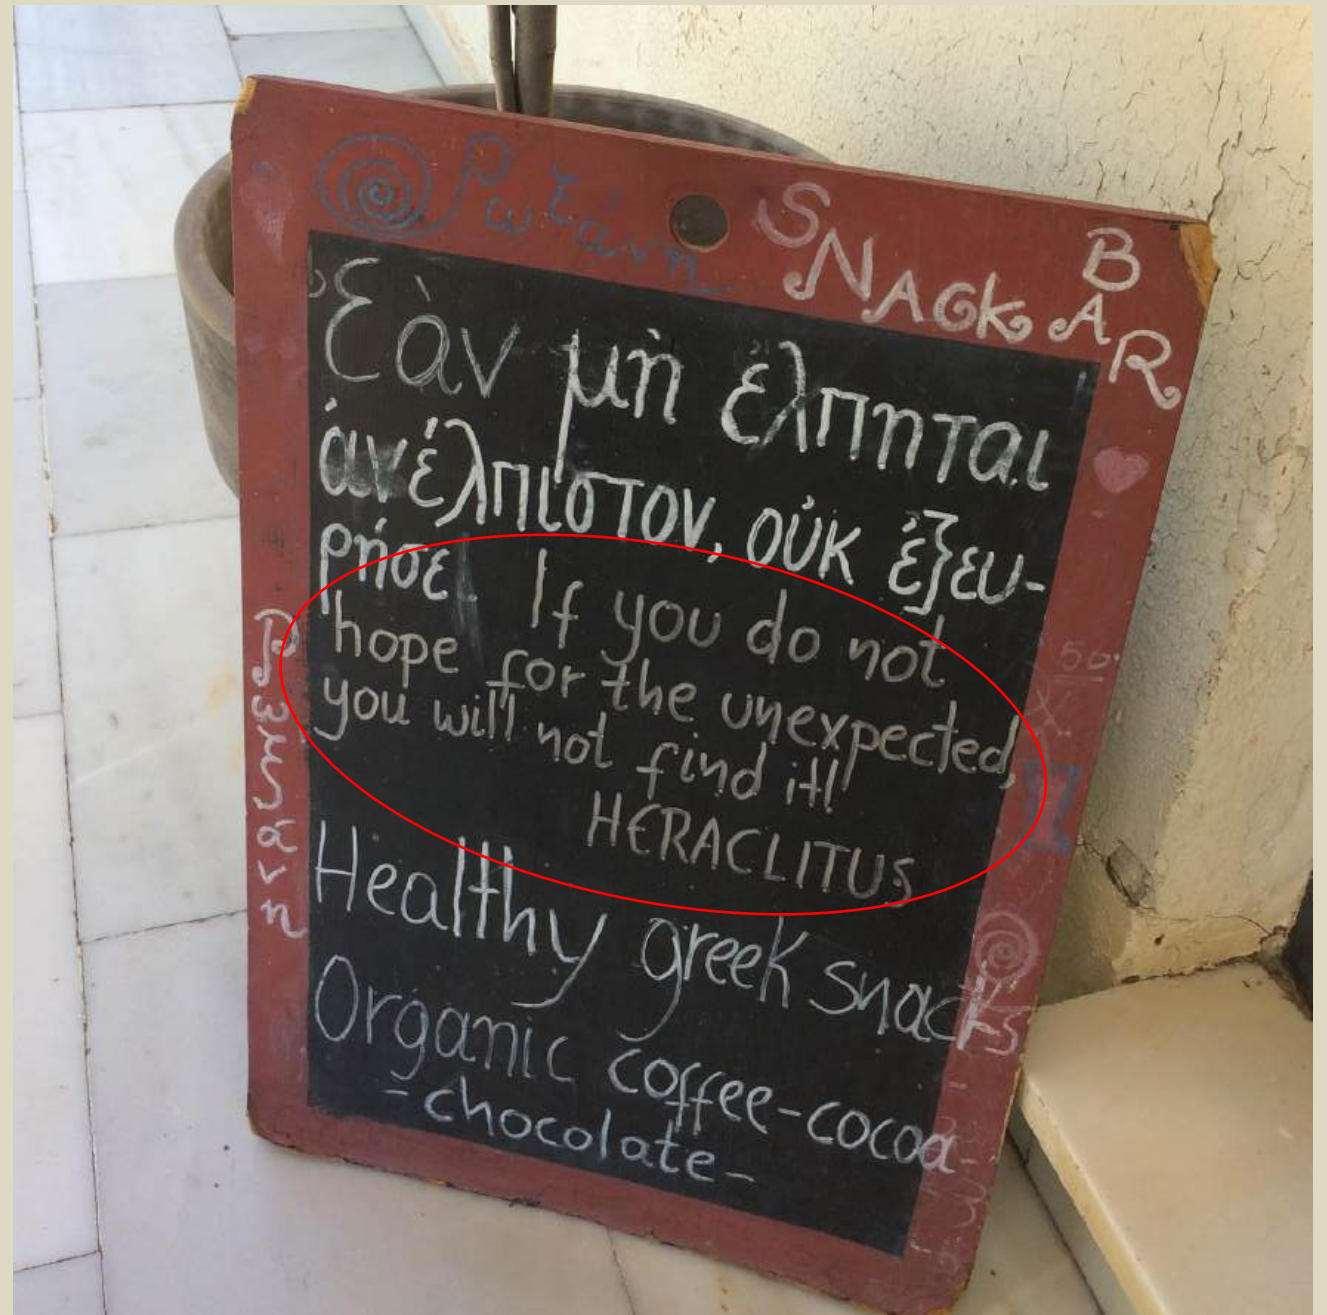 Ρωξάνη SNACK BAR
Ἐὰν μὴ ἔλπηται
ἀνέλπιστον, οὐκ ἐξευ-
ρήσε If you do not
hope for the unexpected,
you will not find it!
HERACLITUS
Healthy greek snacks
Organic coffee-cocoa-
-chocolate-